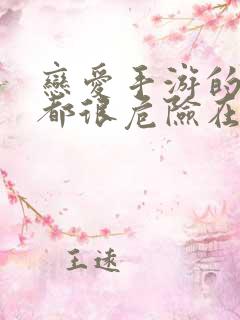 戀愛手游的
都很危險在
王逺